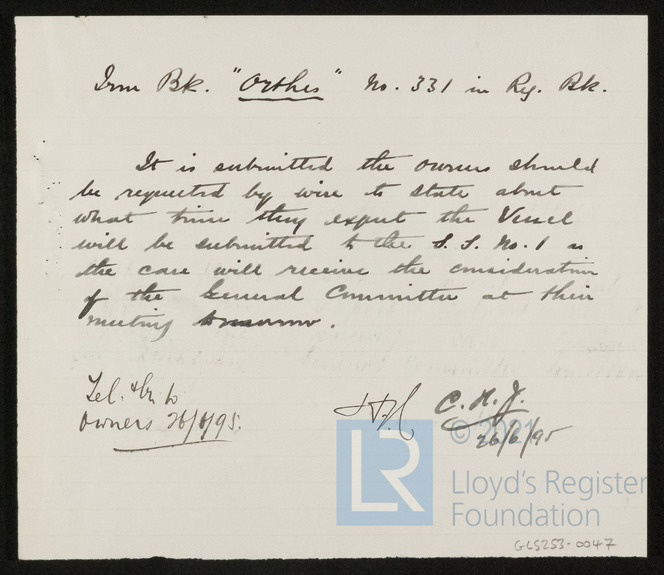 Iron Bk. "Orthes" No. 331 in Reg. Bk.
It is submitted the owners should
be requested by wire to state about
what time they expect the Vessel
will be submitted to the S. S. No. 1 as
the case will receive the consideration
of the General Committee at their
meeting tomorrow.
Tel. & to
Owners 26/6/95.
C. H. J.
26/6/95
© 2021
LR
Lloyd's Register
Foundation
GLS253-0047